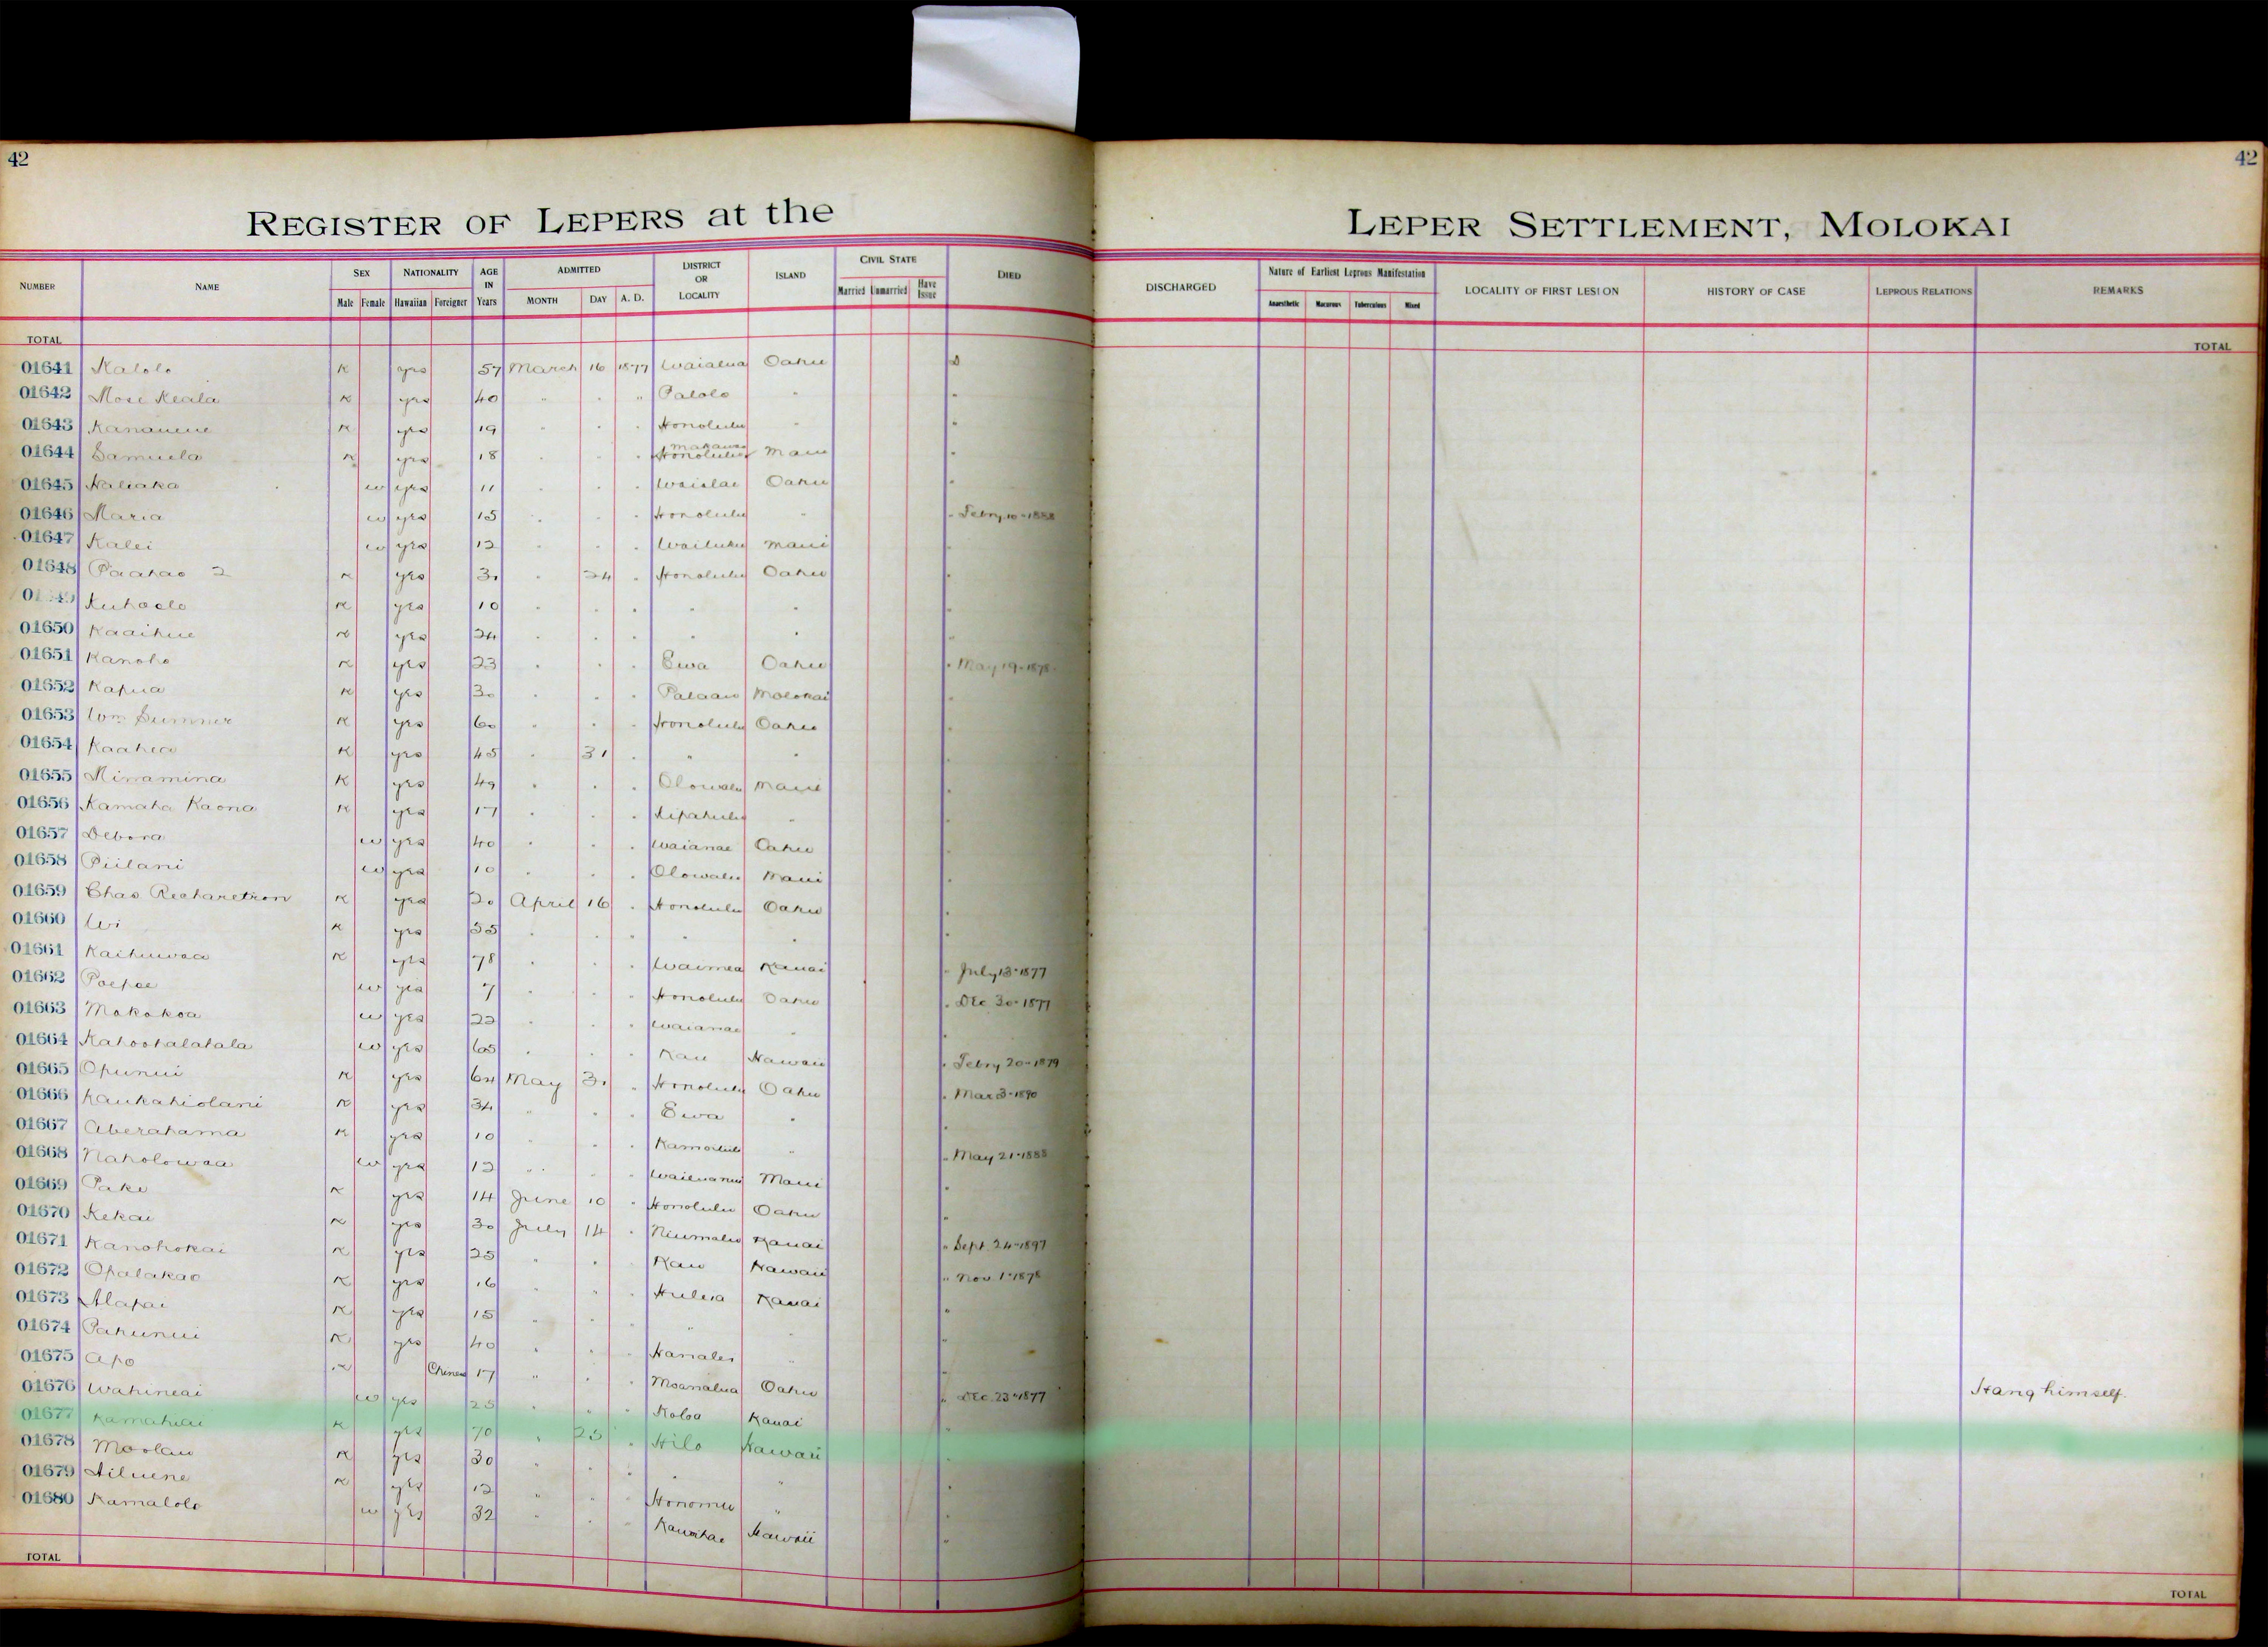 42
42
REGISTER OF LEPERS at the
LEPER SETTLEMENT, MOLOKAI
NUMBER NAME SEX Male Female NATIONALITY Hawaiian Foreigner AGE IN Years ADMITTED MONTH DAY A. D. DISTRICT OR LOCALITY ISLAND CIVIL STATE Married Unmarried Have Issue DIED
DISCHARGED Nature of Earliest Leprous Manifestation Anaesthetic Macurous Tuberculous Mixed LOCALITY OF FIRST LESION HISTORY OF CASE LEPROUS RELATIONS REMARKS
TOTAL
TOTAL
01641 Kalolo K yes 57 March 16 1877 Waialua Oahu D
01642 Mose Keala K yes 40 " " " Palolo " "
01643 K yes 19 " " " Honolulu " "
01644 Samuela K yes 18 " " " Makawao Honolulu Maui "
01645 Haliaka w yes 11 " " " Waialae Oahu "
01646 Maria w yes 15 " " " Honolulu " " Febry 10-1888
01647 Kalei w yes 12 " " " Wailuku Maui "
01648 Paahao 2 K yes 30 " 24 " Honolulu Oahu "
Kuhaelo K yes 10 " " " " " "
01650 Kaaihue K yes 24 " " " " " "
01651 Kanoho K yes 23 " " " Ewa Oahu " May 19-1878
01652 Kapua K yes 30 " " " Palaau Molokai "
01653 Wm Sumner K yes 60 " " " Honolulu Oahu "
01654 Kaahea K yes 45 " 31 " " " "
01655 Minamina K yes 49 " " " Olowalu Maui "
01656 Kamaha Kaona K yes 17 " " " Kipahulu " "
01657 Debora w yes 40 " " " Waianae Oahu "
01658 Piilani w yes 10 " " " Olowalu Maui "
01659 Chas Richardson K yes 20 April 16 " Honolulu Oahu "
01660 Wi K yes 35 " " " " " "
01661 Kaihuwaa K yes 78 " " " Waimea Kauai " July 13-1877
01662 Poepoe w yes 7 " " " Honolulu Oahu " Dec 30-1877
01663 Makakoa w yes 22 " " " Waianae " "
01664 Kahoohalahala w yes 65 " " " Kau Hawaii " Febry 20-1879
01665 Opunui K yes 64 May 31 " Honolulu Oahu " Mar 3-1890
01666 Kaukahiolani K yes 34 " " " Ewa " "
01667 Aberahama K yes 10 " " " Kamoiliili " " May 21-1888
01668 Naholowaa w yes 12 " " " Wailuanui Maui "
01669 Pake K yes 14 June 10 " Honolulu Oahu "
01670 Kekai K yes 30 July 14 " Niumalu Kauai " Sept. 24-1897
01671 Kanohokai K yes 25 " " " Kau Hawaii " Nov 1-1878
01672 Opalakao K yes 16 " " " Huleia Kauai "
01673 Alapai K yes 15 " " " " " "
01674 Pahunui K yes 40 " " " Hanalei " "
01675 Apo K Chinese 17 " " " Moanalua Oahu " Dec. 23-1877 Hang himself.
01676 Wahineai w yes 25 " " " Koloa Kauai "
01677 Kamahiai K yes 70 " 25 " Hilo Hawaii "
01678 Moolau K yes 30 " " " " " "
01679 K yes 12 " " " Honomu " "
01680 Kamalolo w yes 32 " " " Kawaihae Hawaii "
TOTAL
TOTAL